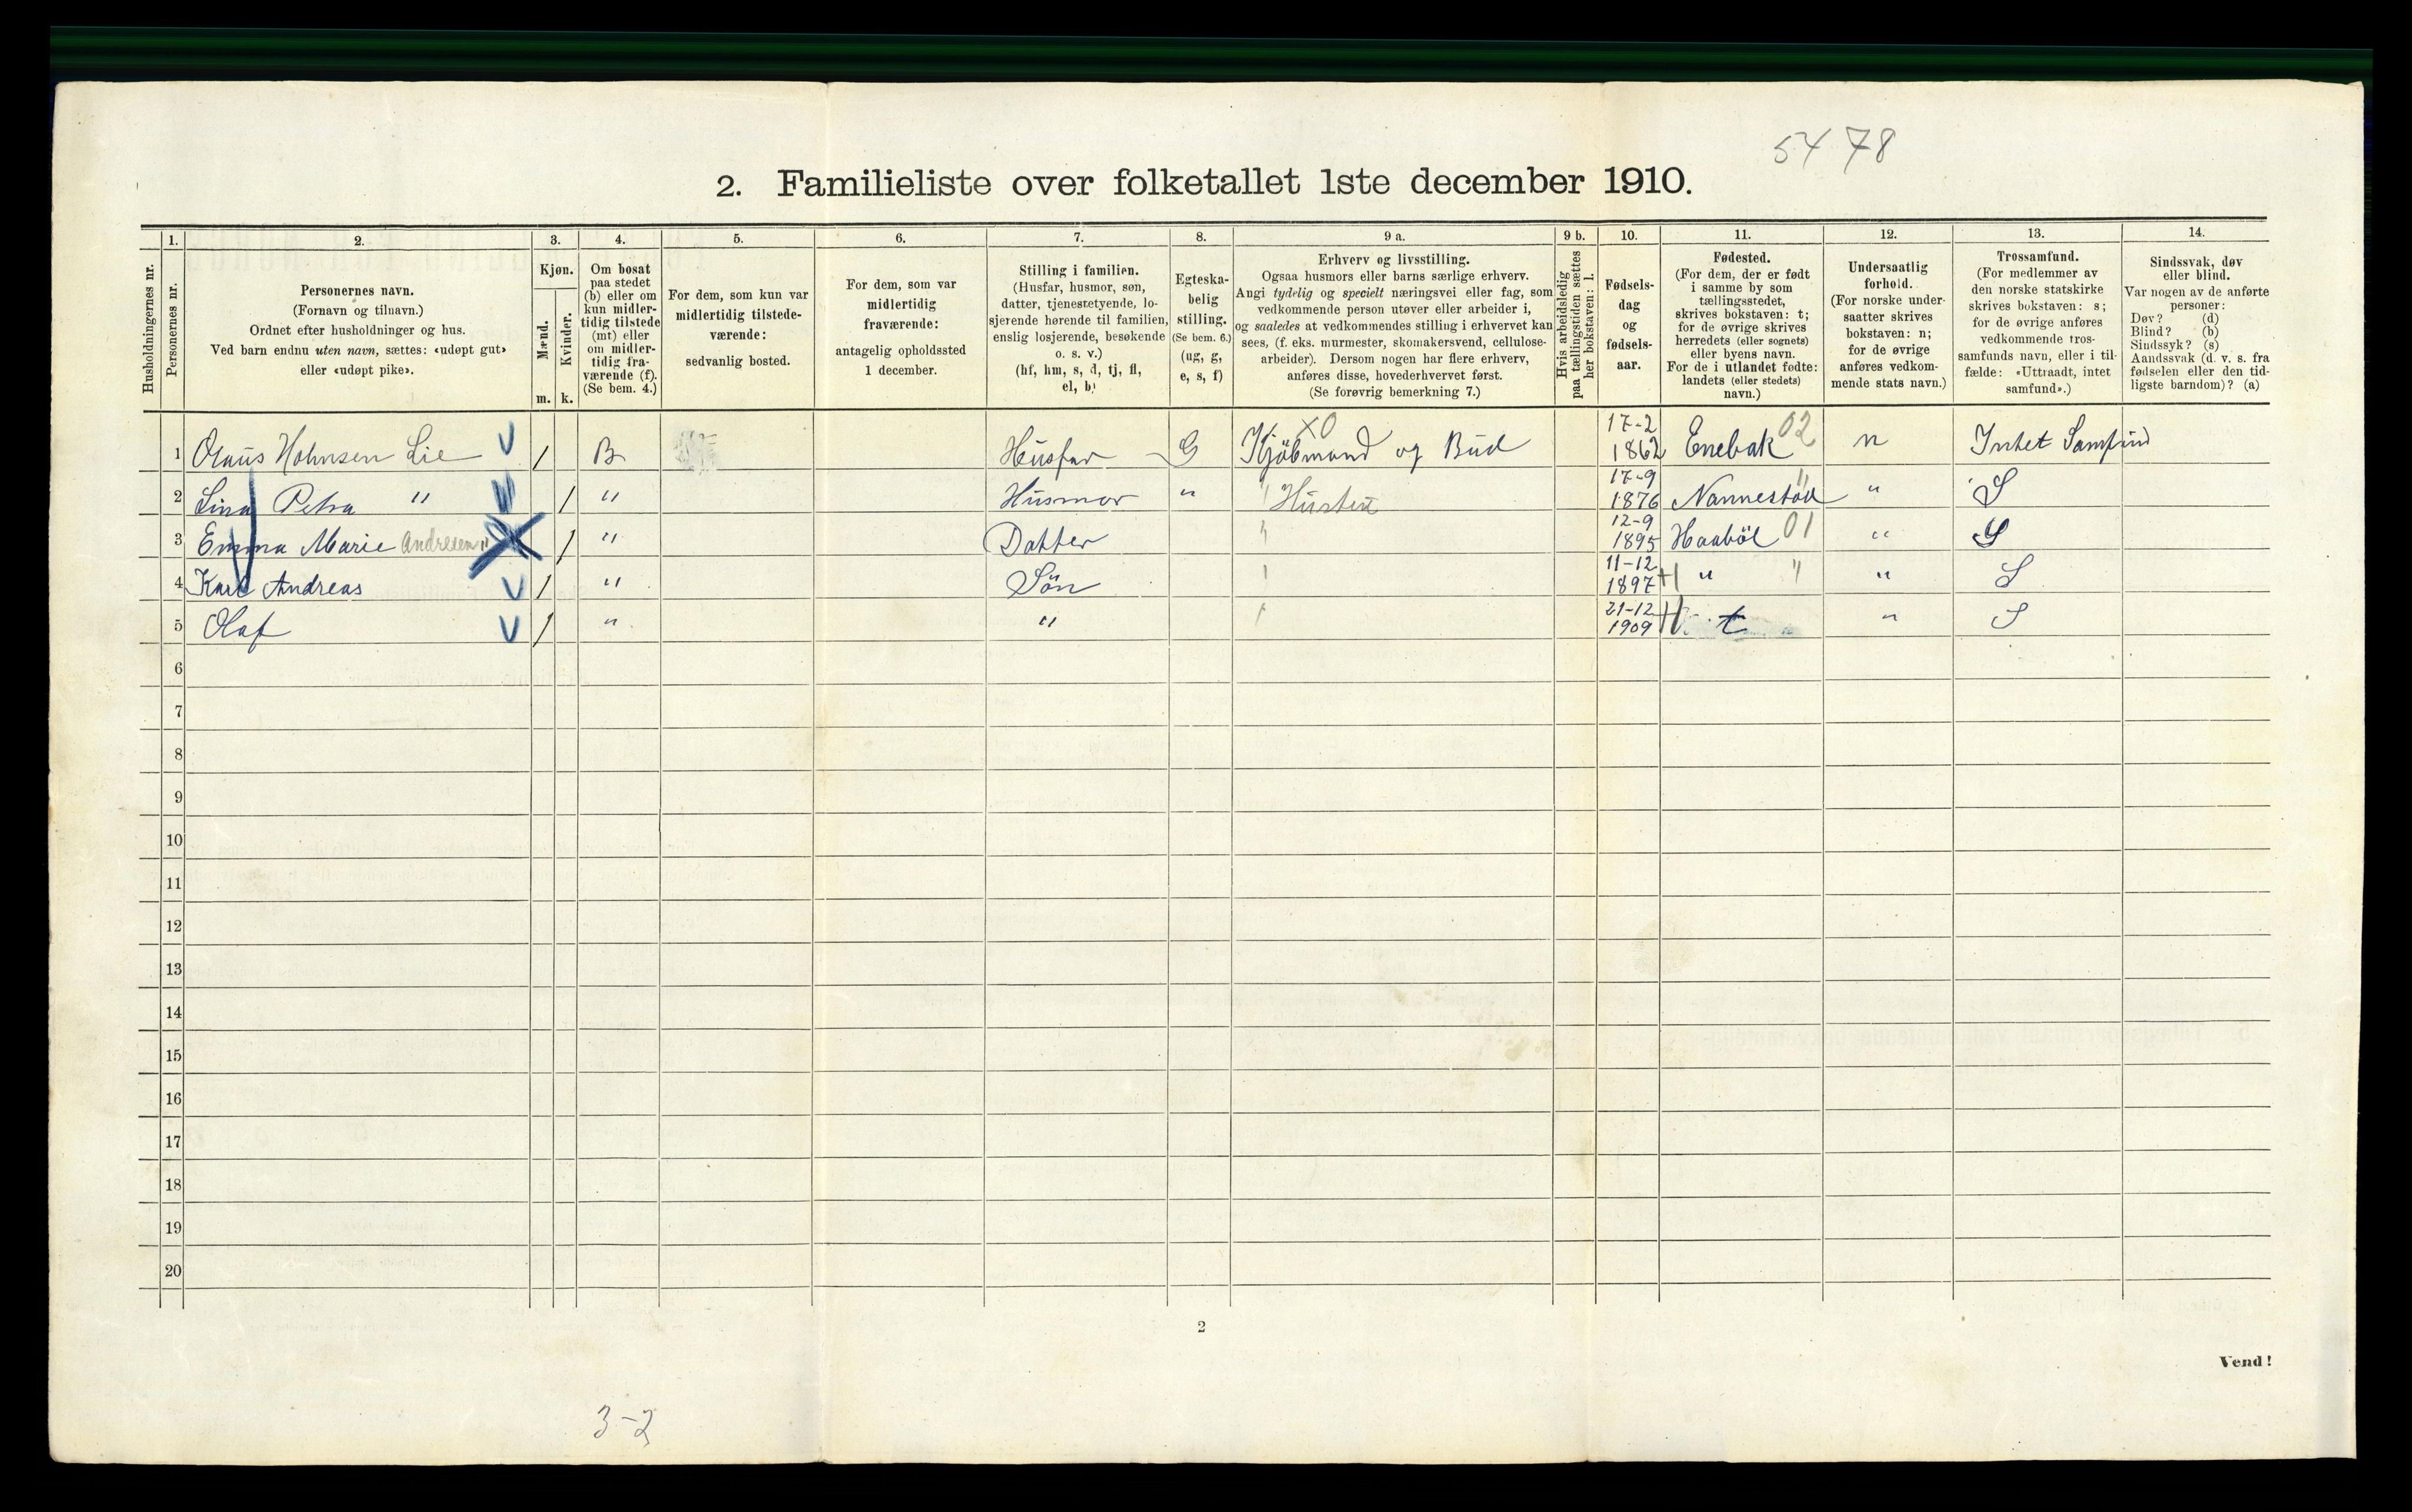 54 78
2. Familieliste over folketallet 1ste december 1910.
Husholdningernes nr.
1. Personernes nr.
2.
Personernes navn.
(Fornavn og tilnavn.)
Ordnet efter husholdninger og hus.
Ved barn endnu uten navn, sættes: «udøpt gut»
eller «udøpt pike».
3.
Kjøn.
Mænd. Kvinder.
m. k.
4.
Om bosat
paa stedet
(b) eller om
kun midler-
tidig tilstede
(mt) eller
om midler-
tidig fra-
værende (f).
(Se bem. 4.)
5.
For dem, som kun var
midlertidig tilstede-
værende:
sedvanlig bosted.
6.
For dem, som var
midlertidig
fraværende:
antagelig opholdssted
1 december.
7.
Stilling i familien.
(Husfar, husmor, søn,
datter, tjenestetyende, lo-
sjerende hørende til familien,
enslig losjerende, besøkende
o. s. v.)
(hf, hm, s, d, tj, fl,
el, b)
8.
Egteska-
belig
stilling.
(Se bem. 6.)
(ug, g,
e, s, f)
9 a.
Erhverv og livsstilling.
Ogsaa husmors eller barns særlige erhverv.
Angi tydelig og specielt næringsvei eller fag, som
vedkommende person utøver eller arbeider i,
og saaledes at vedkommendes stilling i erhvervet kan
sees, (f. eks. murmester, skomakersvend, cellulose-
arbeider). Dersom nogen har flere erhverv,
anføres disse, hovederhvervet først.
(Se forøvrig bemerkning 7.)
9 b.
Hvis arbeidsledig
paa tællingstiden sættes
her bokstaven: l.
10.
Fødsels-
dag
og
fødsels-
aar.
11.
Fødested.
(For dem, der er født
i samme by som
tællingsstedet,
skrives bokstaven: t;
for de øvrige skrives
herredets (eller sognets)
eller byens navn.
For de i utlandet fødte:
landets (eller stedets)
navn.)
12.
Undersaatlig
forhold.
(For norske under-
saatter skrives
bokstaven: n;
for de øvrige
anføres vedkom-
mende stats navn.)
13.
Trossamfund.
(For medlemmer av
den norske statskirke
skrives bokstaven: s;
for de øvrige anføres
vedkommende tros-
samfunds navn, eller i til-
fælde: «Uttraadt, intet
samfund».)
14.
Sindssvak, døv
eller blind.
Var nogen av de anførte
personer:
Døv? (d)
Blind? (b)
Sindssyk? (s)
Aandssvak (d. v. s. fra
fødselen eller den tid-
ligste barndom)? (a)
1 Olaus Hohnsen Lie 1 B Husfar G Kjöbmand og Bud XO 17-2 1862 Enebak 02 n Intet Samfund
2 Lina Petra " 1 " Husmor " Hustru 17-9 1876 Nannestad " " S
3 Emma Marie Andresen " 1 " Datter 12-9 1895 Haaböl 01 " S
4 Karl Andreas 1 " Sön 11-12 1897 " " " S
5 Olaf 1 " " 21-12 1909 t " S
6
7
8
9
10
11
12
13
14
15
16
17
18
19
20
2
Vend!
3-2